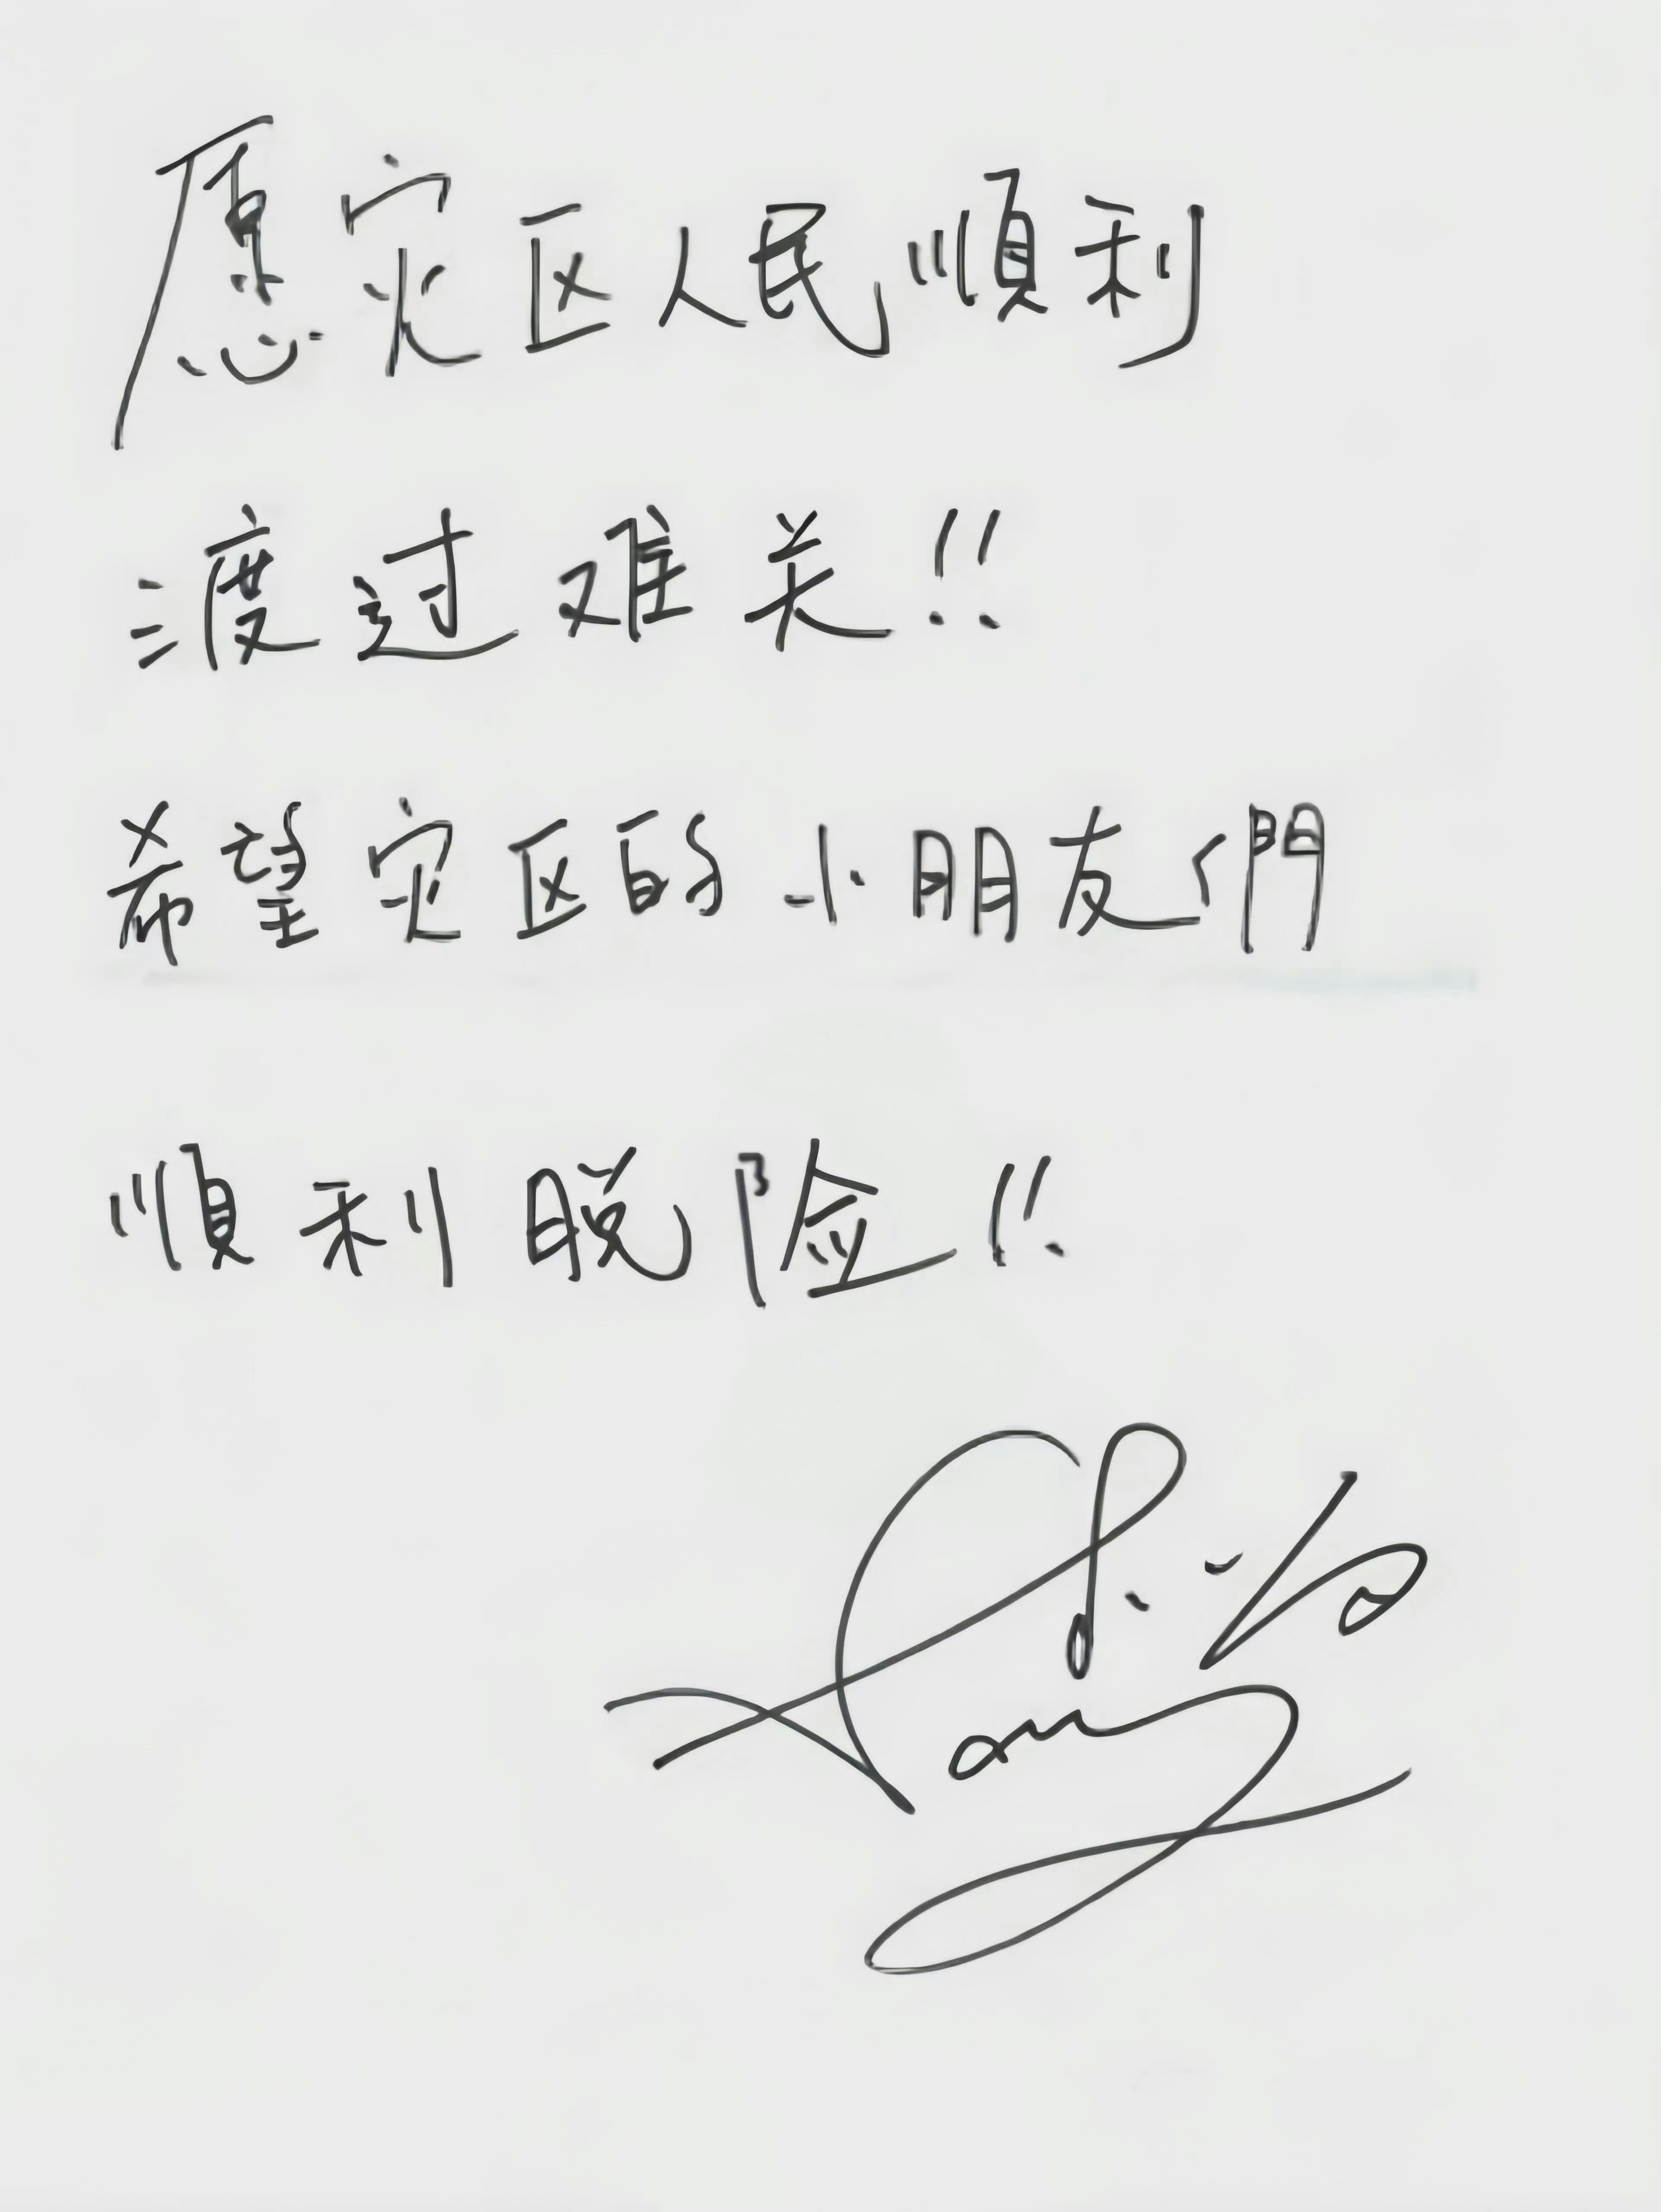 愿灾区人民順利
渡过难关!!
希望灾区的小朋友們
順利脱险!!